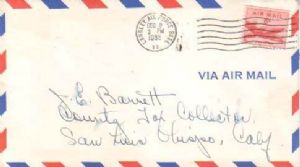 LANGLEY AIR FORCE BASE
DEC 9
3 PM
1955
VA
AIR MAIL
VIA AIR MAIL
J. E. Barrett
County Tax Collector
San Luis Obispo, Caly